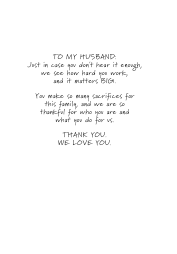 TO MY HUSBAND:
Just in case you don't hear it enough,
we see how hard you work,
and it matters BIG!
You make so many sacrifices for
this family, and we are so
thankful for who you are and
what you do for us.
THANK YOU.
WE LOVE YOU.